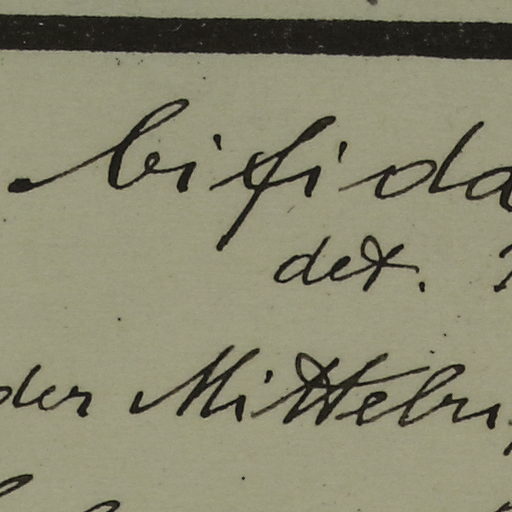 bifida
det.
der Mittelri